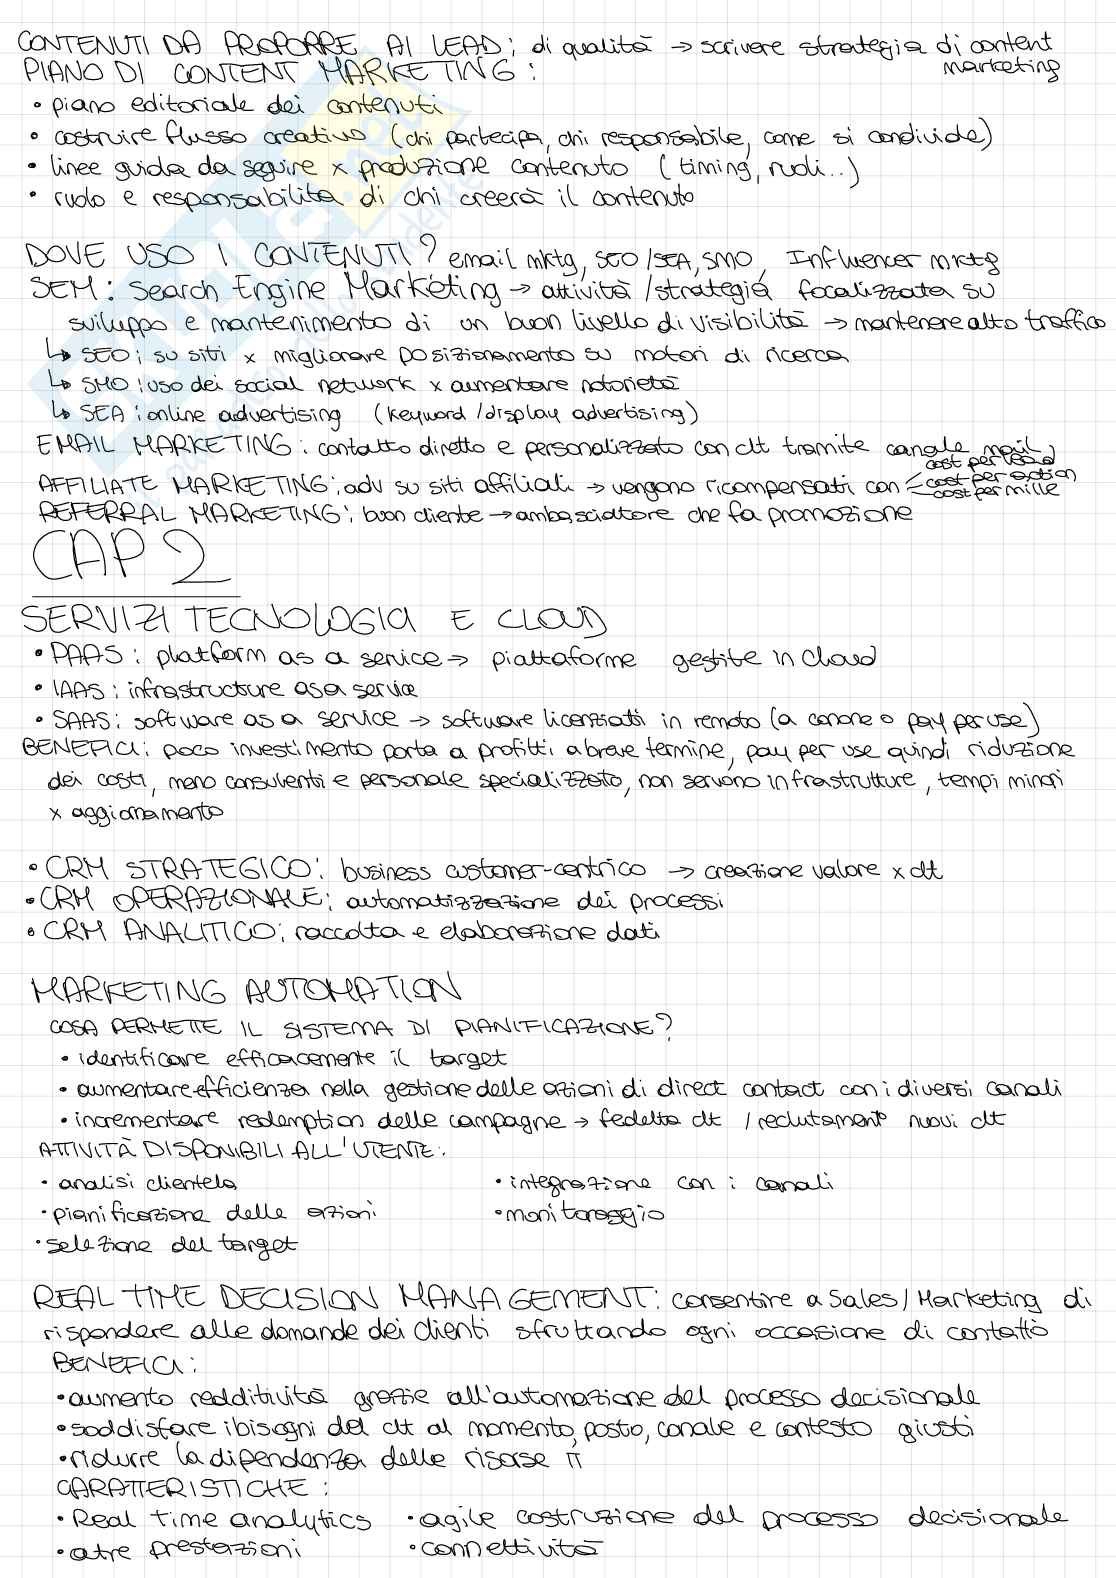 CONTENUTI DA PROPORRE AI LEAD: di qualità → scrivere strategia di content marketing
PIANO DI CONTENT MARKETING:
• piano editoriale dei contenuti
• costruire flusso creativo (chi partecipa, chi responsabile, come si condivide)
• linee guida da seguire x produzione contenuto (timing, ruoli..)
• ruolo e responsabilità di chi creerà il contenuto
DOVE USO I CONTENUTI? email mktg, SEO/SEA, SMO, Influencer mktg
SEM: Search Engine Marketing → attività/strategia focalizzata su
sviluppo e mantenimento di un buon livello di visibilità → mantenere alto traffico
↳ SEO: su siti x migliorare posizionamento su motori di ricerca
↳ SMO: uso dei social network x aumentare notorietà
↳ SEA: online advertising (keyword/display advertising)
EMAIL MARKETING: contatto diretto e personalizzato con clt tramite canale mail
AFFILIATE MARKETING: adv su siti affiliali → vengono ricompensati con cost per lead
cost per action
cost per mille
REFERRAL MARKETING: buon cliente → ambasciatore che fa promozione
CAP 2
SERVIZI TECNOLOGIA E CLOUD
• PAAS: platform as a service → piattaforme gestite in cloud
• IAAS: infrastructure as a service
• SAAS: software as a service → software licenziati in remoto (a canone o pay per use)
BENEFICI: poco investimento porta a profitti a breve termine, pay per use quindi riduzione
dei costi, meno consulenti e personale specializzato, non servono infrastrutture, tempi minori
x aggiornamento
• CRM STRATEGICO: business customer-centrico → creazione valore x clt
• CRM OPERAZIONALE: automatizzazione dei processi
• CRM ANALITICO: raccolta e elaborazione dati
MARKETING AUTOMATION
COSA PERMETTE IL SISTEMA DI PIANIFICAZIONE?
• identificare efficacemente il target
• aumentare efficienza nella gestione delle azioni di direct contact con i diversi canali
• incrementare redemption delle campagne → fedeltà clt / reclutamento nuovi clt
ATTIVITÀ DISPONIBILI ALL'UTENTE:
• analisi clientela • integrazione con i canali
• pianificazione delle azioni • monitoraggio
• selezione del target
REAL TIME DECISION MANAGEMENT: consentire a Sales/Marketing di
rispondere alle domande dei clienti sfruttando ogni occasione di contatto
BENEFICI:
• aumento redditività grazie all'automazione del processo decisionale
• soddisfare i bisogni del clt al momento, posto, canale e contesto giusti
• ridurre la dipendenza delle risorse IT
CARATTERISTICHE:
• Real time analytics • agile costruzione del processo decisionale
• altre prestazioni • connettività